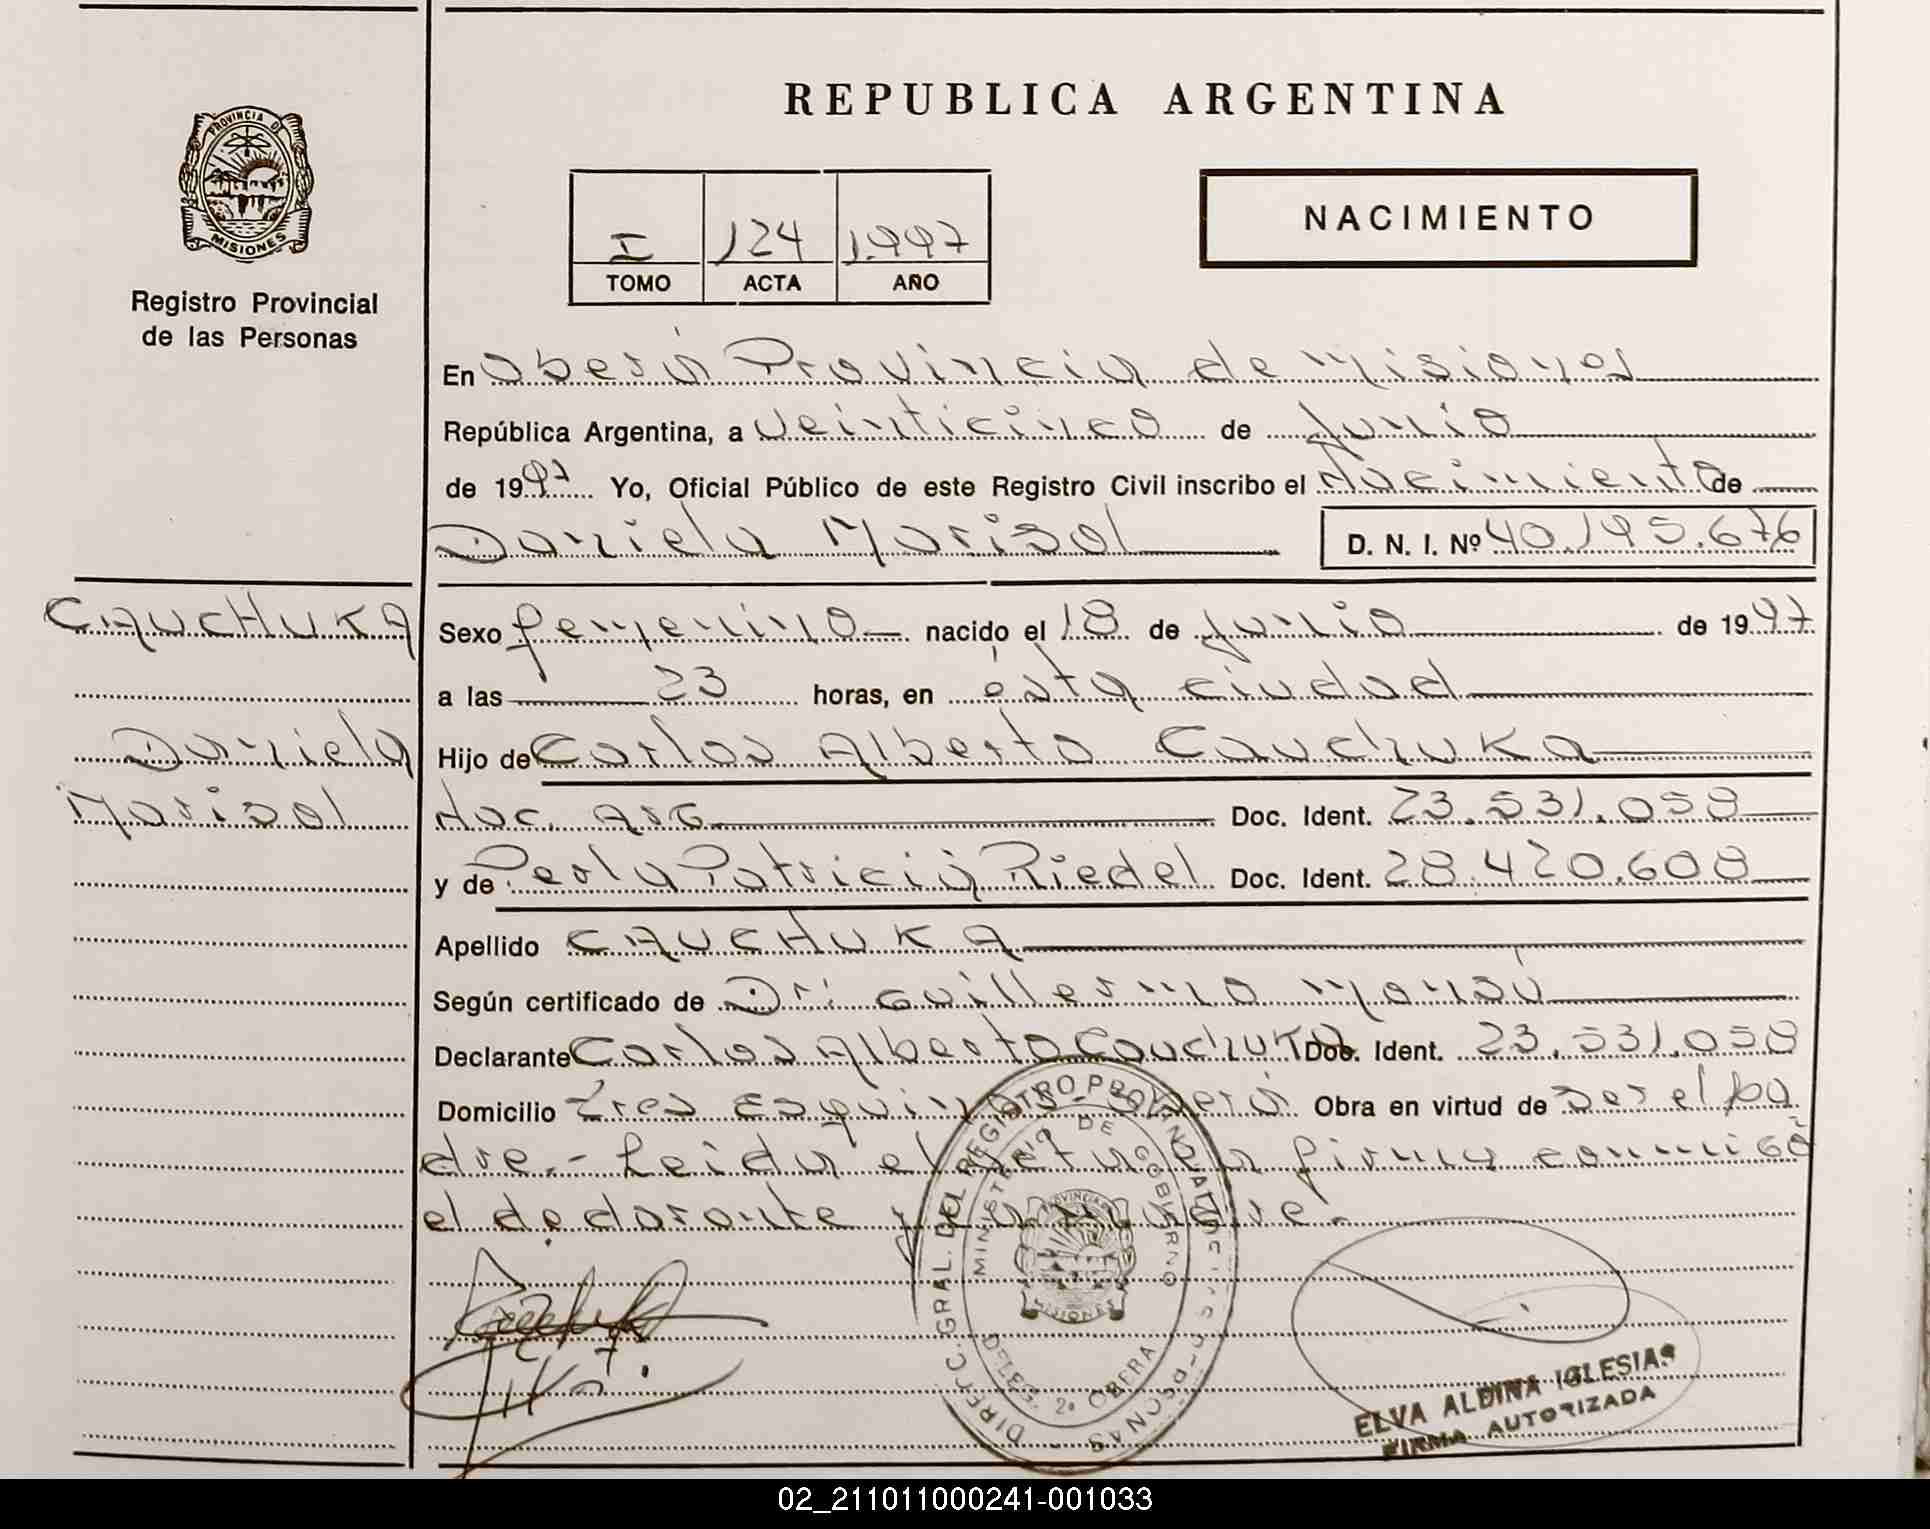 PROVINCIA DE
MISIONES
Registro Provincial
de las Personas
REPUBLICA ARGENTINA
I 124 1.997
TOMO ACTA AÑO
NACIMIENTO
En Oberá Provincia de Misiones
República Argentina, a veinticinco de Junio
de 1997 Yo, Oficial Público de este Registro Civil inscribo el Nacimiento de
Daniela Marisol D. N. I. Nº 40.195.676
CAUCHUKA
Daniela
Marisol
Sexo femenino nacido el 18 de Junio de 1997
a las 23 horas, en ésta ciudad
Hijo de Carlos Alberto Cauchuka
Nac. Arg. Doc. Ident. 23.531.058
y de Perla Patricia Riedel Doc. Ident. 28.420.608
Apellido CAUCHUKA
Según certificado de Dr: Guillermo Mansú
Declarante Carlos Alberto Cauchuka Doc. Ident. 23.531.058
Domicilio Tres Esquinas - Oberá Obra en virtud de ser el pa
dre.- Leida el acta la firma conmigo
el declarante y la madre.-
DIRECC. GRAL. DEL REGISTRO PROVINCIAL DE LAS PERSONAS
MINISTERIO DE GOBIERNO
PROVINCIA
MISIONES
2a OBERA
ELVA ALBINA IGLESIAS
FIRMA AUTORIZADA
02_211011000241-001033